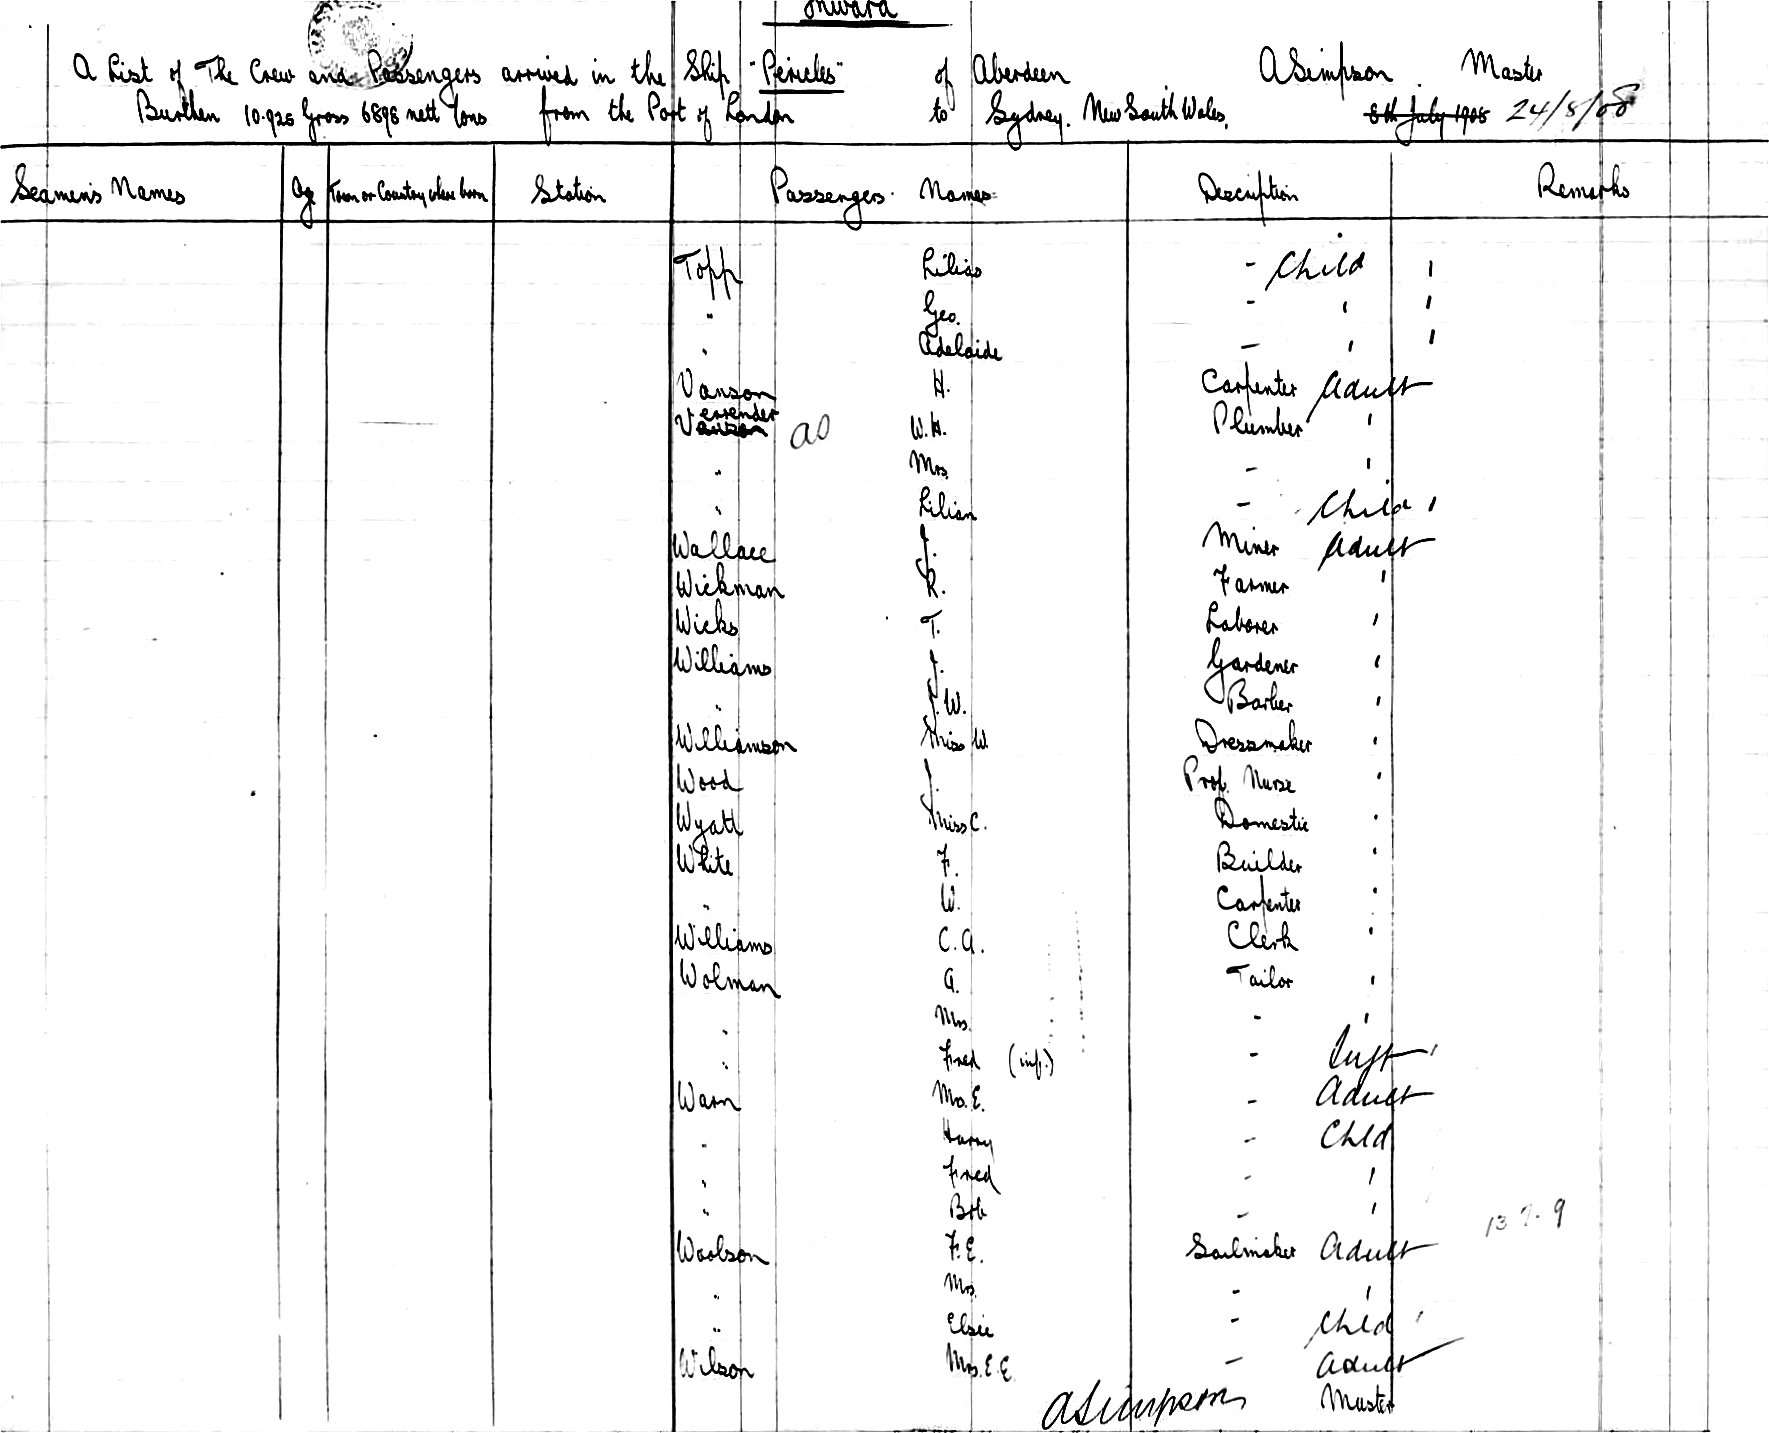 onward
A List of The Crew and Passengers arrived in the Ship "Pericles" of Aberdeen ASimpson. Master
Burthen 10.925 Gross 6898 nett Tons from the Port of London to Sydney. New South Wales. 8th July 1908 24/8/08
Seamen's Names Age Town or Country where born Station Passengers Names Description Remarks
Topp Lilias - Child '
" Geo. - ' '
" Adelaide - ' '
Vanson H. Carpenter Adult
Verrender
Vanson W.H. Plumber '
" Mrs. - '
" Lilian - Child '
Wallace J. Miner Adult
Wickman R. Farmer '
Wicks T. Laborer '
Williams J. Gardener '
" J.W. Barber '
Williamson Miss W. Dressmaker '
Wood J. Prof. Nurse '
Wyatt Miss C. Domestic '
White F. Builder '
" W. Carpenter '
Williams C.A. Clerk '
Wolman A. Tailor '
" Mrs. - '
" Fred (inf.) - Inft '
Warn Mrs. E. - Adult
" Harry - Chld
" Fred - '
" Bob - '
Woolson F.E. Sailmaker Adult
" Mrs. - '
" Elsie - Chld '
Wilson Mrs. E.E. - Adult
ASimpson Master